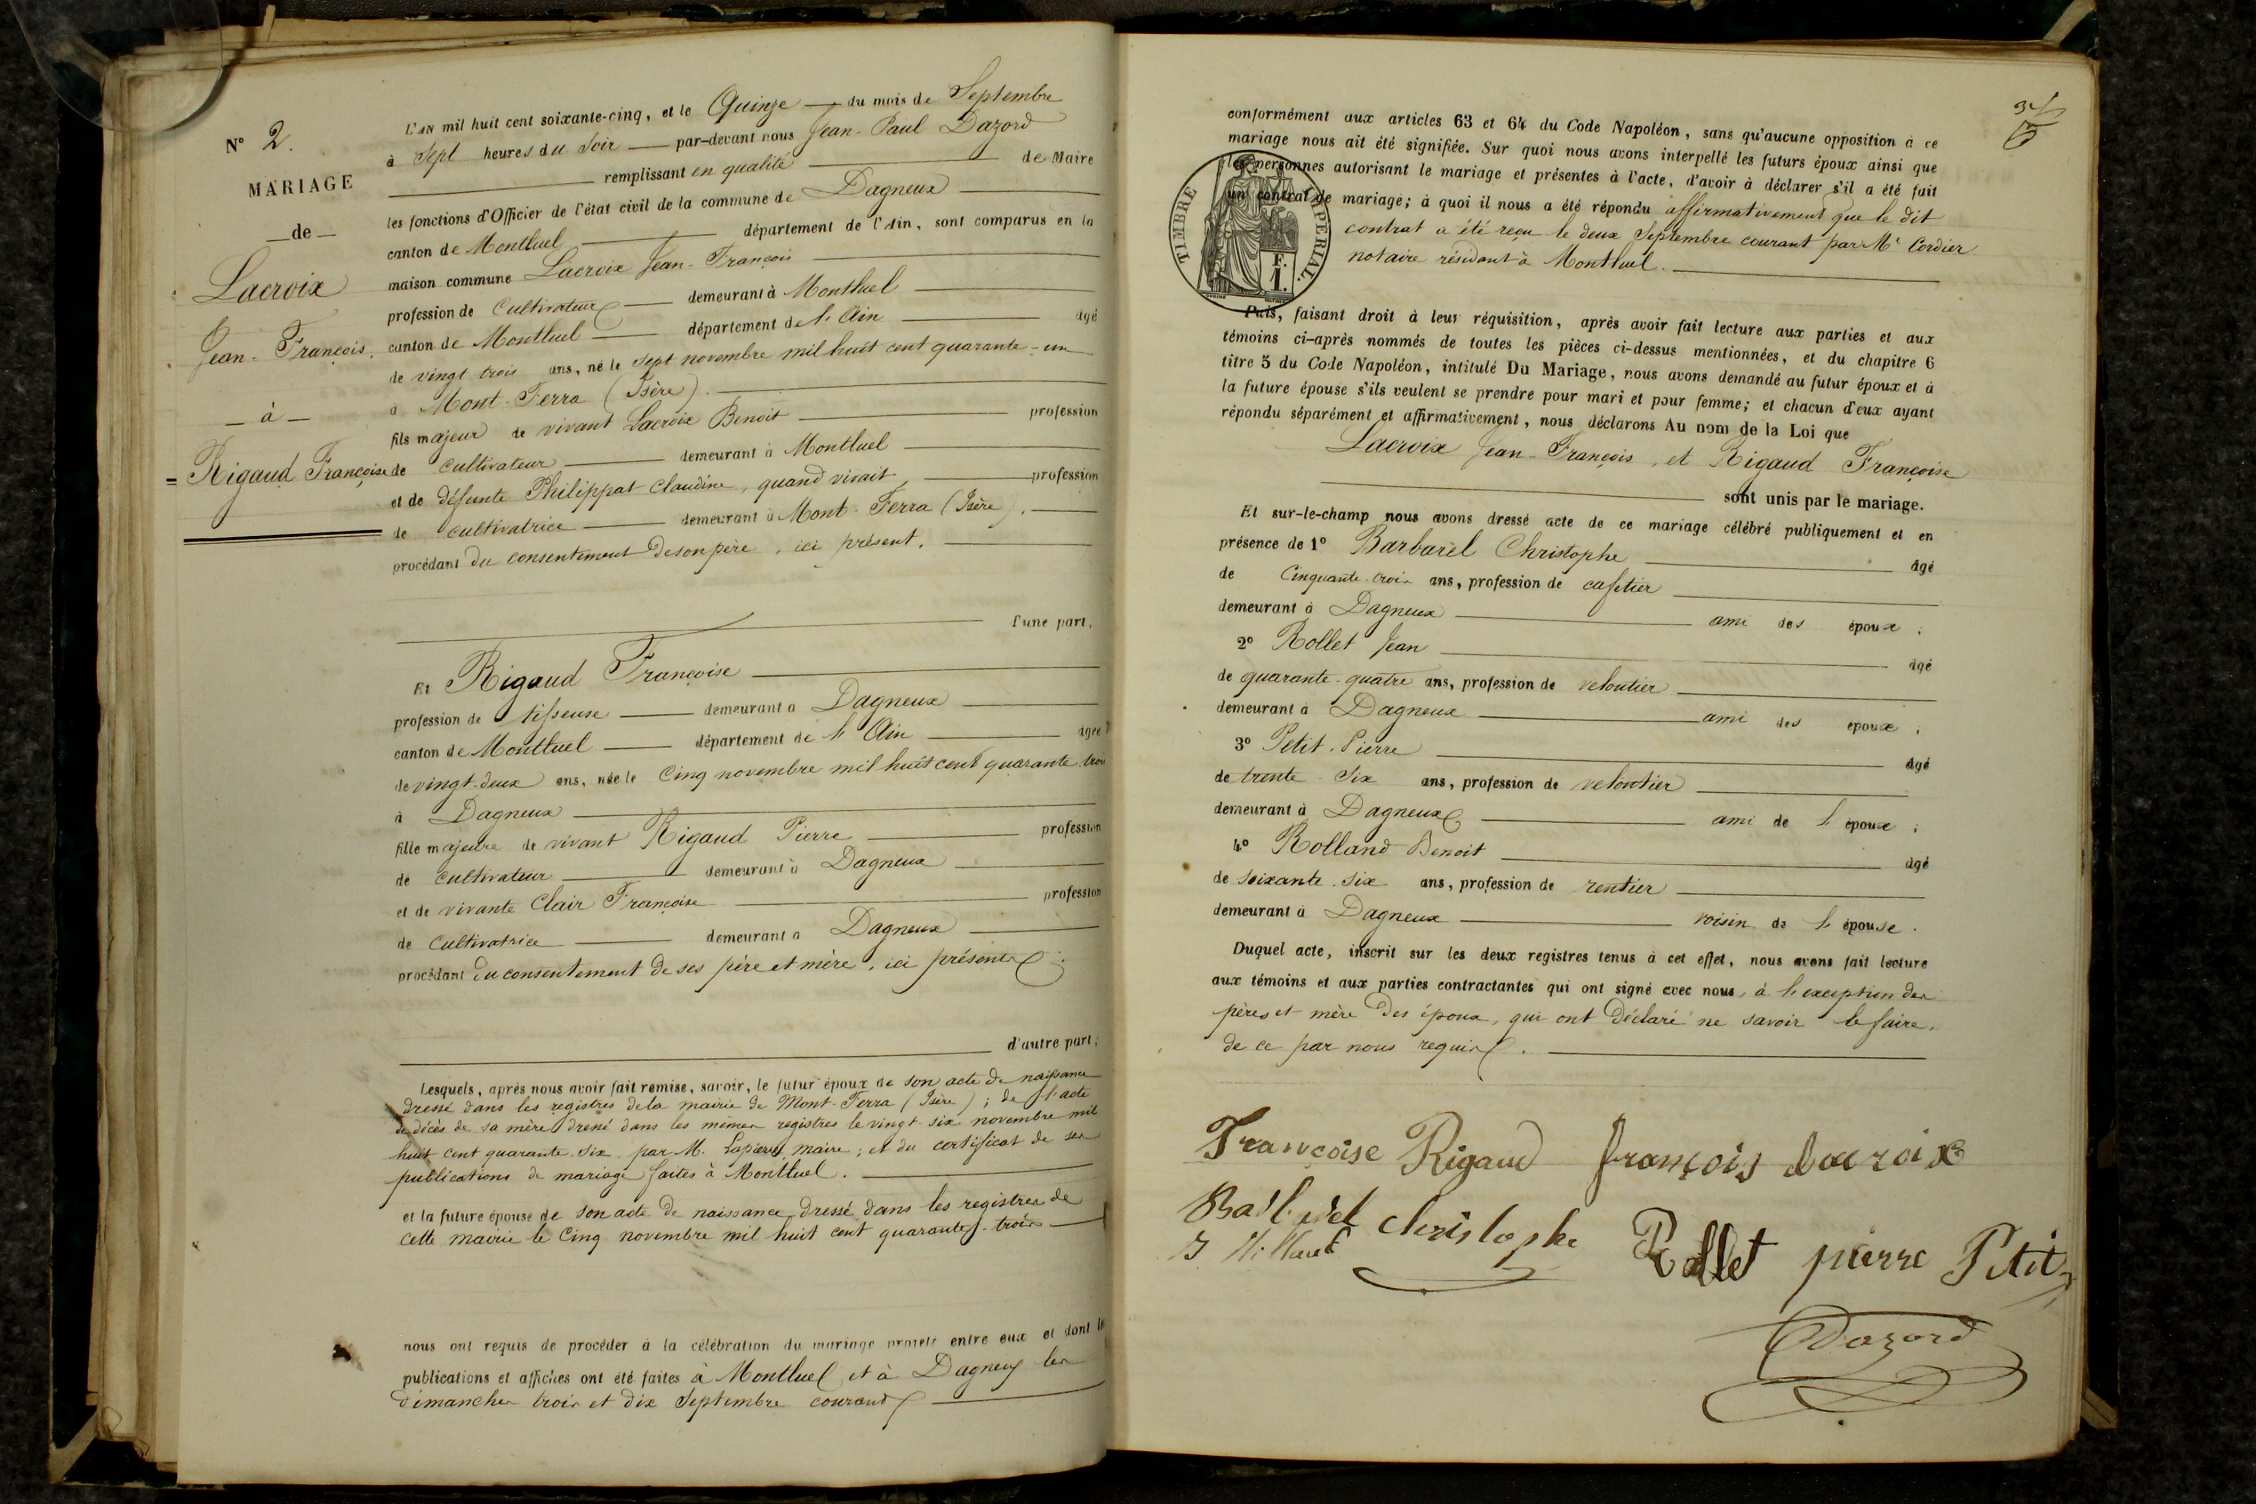 N° 2.
MARIAGE
de
Lacroix
Jean-François.
à
Rigaud Françoise
L'AN mil huit cent soixante-cinq, et le Quinze du mois de Septembre
à Sept heures du Soir par-devant nous Jean-Paul Dazord
remplissant en qualité de Maire
les fonctions d'Officier de l'état civil de la commune de Dagneux
canton de Montluel département de l'Ain, sont comparus en la
maison commune Lacroix Jean-François
profession de Cultivateur demeurant à Montluel
canton de Montluel département de l'Ain âgé
de vingt trois ans, né le sept novembre mil huit cent quarante-un
à Mont-Ferra (Isère).
fils majeur de vivant Lacroix Benoit profession
de cultivateur demeurant à Montluel
et de défunte Philippat Claudine, quand vivait, profession
de cultivatrice demeurant à Mont-Ferra (Isère).
procédant du consentement de son père, ici présent.
d'une part,
Et Rigaud Françoise
profession de tisseuse demeurant à Dagneux
canton de Montluel département de l'Ain âgée
de vingt-deux ans, née le Cinq novembre mil huit cent quarante trois
à Dagneux
fille majeure de vivant Rigaud Pierre profession
de cultivateur demeurant à Dagneux
et de vivante Clair Françoise profession
de Cultivatrice demeurant à Dagneux
procédant du consentement de ses père et mère, ici présents
d'autre part;
Lesquels, après nous avoir fait remise, savoir, le futur époux de son acte de naissance
dressé dans les registres de la mairie de Mont-Ferra (Isère); de l'acte
de décès de sa mère dressé dans les mêmes registres le vingt-six novembre mil
huit cent quarante-six par M. maire; et du certificat de ses
publications de mariage faites à Montluel.
et la future épouse de son acte de naissance dressé dans les registres de
cette mairie le Cinq novembre mil huit cent quarante-trois
nous ont requis de procéder à la célébration du mariage projeté entre eux et dont les
publications et affiches ont été faites à Montluel et à Dagneux les
dimanches trois et dix Septembre courant
conformément aux articles 63 et 64 du Code Napoléon, sans qu'aucune opposition à ce
mariage nous ait été signifiée. Sur quoi nous avons interpellé les futurs époux ainsi que
les personnes autorisant le mariage et présentes à l'acte, d'avoir à déclarer s'il a été fait
un contrat de mariage; à quoi il nous a été répondu affirmativement que le dit
contrat a été reçu le deux Septembre courant par Me Cordier
notaire résidant à Montluel.
TIMBRE IMPÉRIAL.
F.
1.
Puis, faisant droit à leur réquisition, après avoir fait lecture aux parties et aux
témoins ci-après nommés de toutes les pièces ci-dessus mentionnées, et du chapitre 6
titre 5 du Code Napoléon, intitulé Du Mariage, nous avons demandé au futur époux et à
la future épouse s'ils veulent se prendre pour mari et pour femme; et chacun d'eux ayant
répondu séparément et affirmativement, nous déclarons Au nom de la Loi que
Lacroix Jean-François, et Rigaud Françoise
sont unis par le mariage.
Et sur-le-champ nous avons dressé acte de ce mariage célébré publiquement et en
présence de 1° Barbarel Christophe âgé
de Cinquante-trois ans, profession de cafetier
demeurant à Dagneux ami des époux;
2° Rollet Jean âgé
de quarante-quatre ans, profession de veloutier
demeurant à Dagneux ami des époux;
3° Petit Pierre âgé
de trente-six ans, profession de veloutier
demeurant à Dagneux ami de l'époux;
4° Rolland Benoit âgé
de soixante-six ans, profession de rentier
demeurant à Dagneux voisin de l'épouse.
Duquel acte, inscrit sur les deux registres tenus à cet effet, nous avons fait lecture
aux témoins et aux parties contractantes qui ont signé avec nous, à l'exception des
pères et mère des époux, qui ont déclaré ne savoir le faire,
de ce par nous requis.
Françoise Rigaud françois Lacroix
Barbarel Christophe Rollet pierre Petit
Dazord